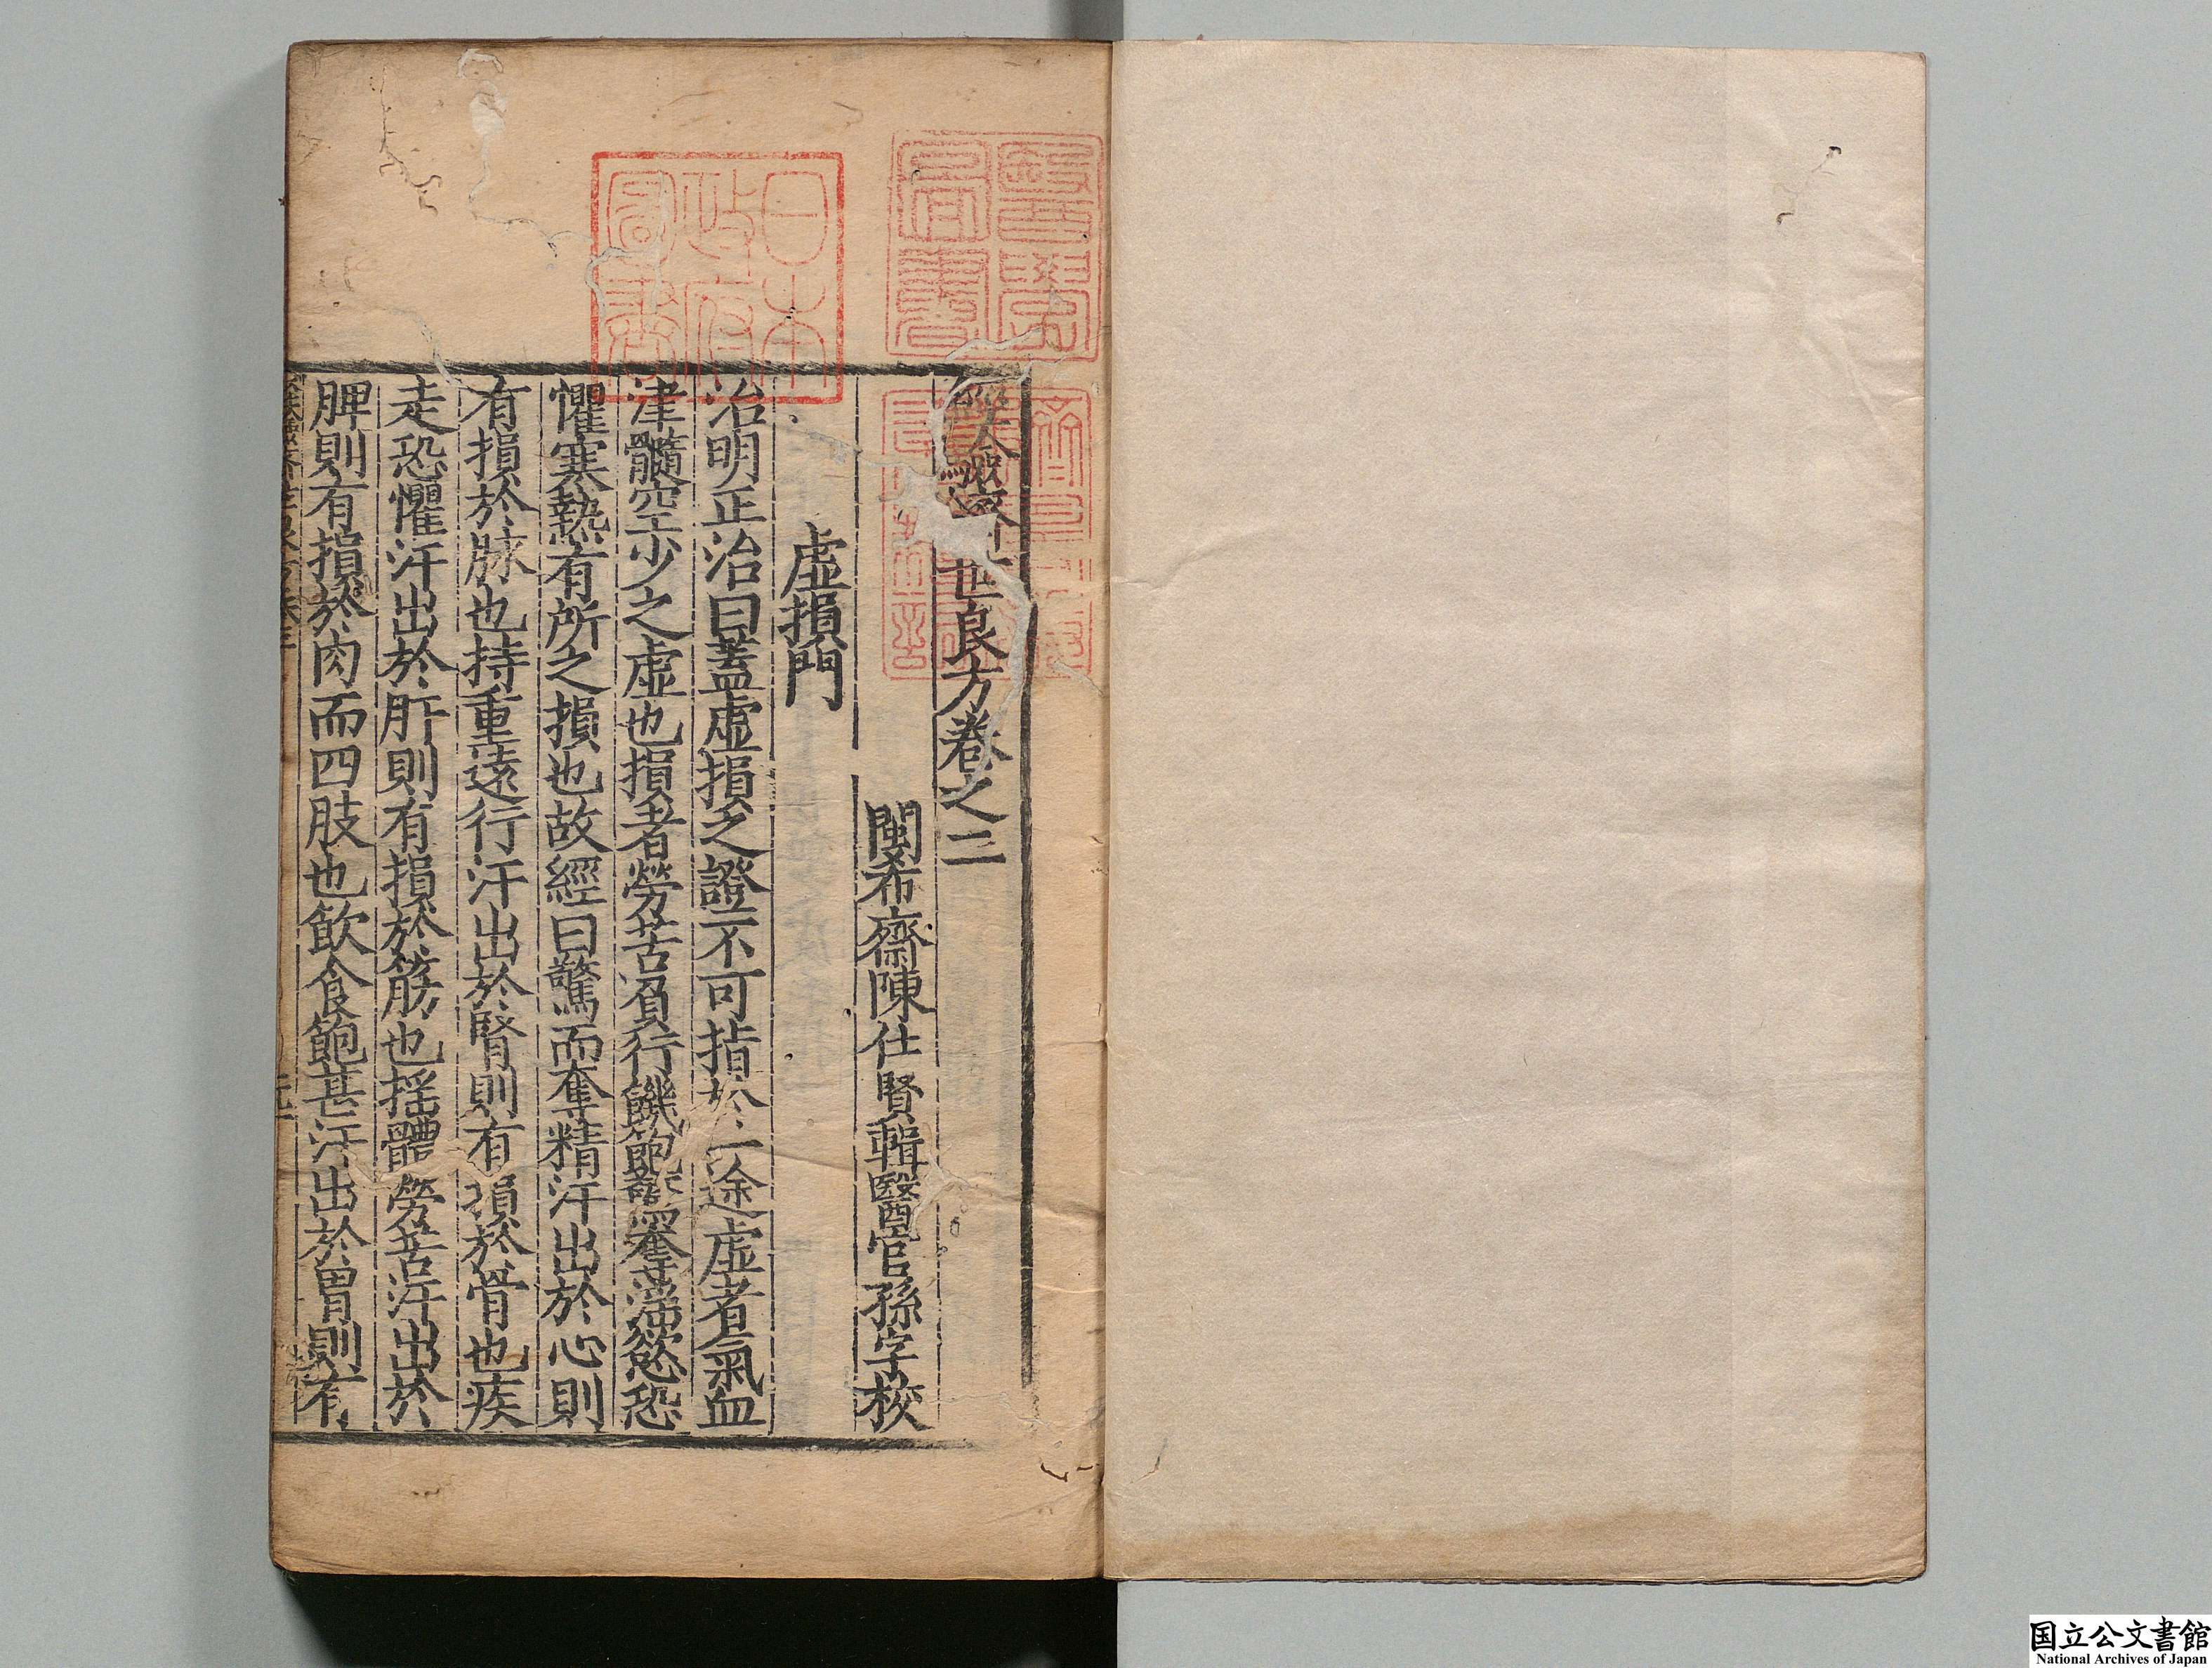 經驗濟世良方卷之二
閩希齋陳仕賢輯醫官孫宇校
虛損門
治明正治曰蓋虛損之證不可指於一途虛者氣血
津髓空少之虛也損者勞苦負行饑飽飲滯慾恐
懼寒熱有所之損也故經曰驚而奪精汗出於心則
有損於脉也持重遠行汗出於腎則有損於骨也疾
走恐懼汗出於肝則有損於筋也揺體勞苦汗出於
脾則有損於肉而四肢也飲食飽甚汗出於胃則有
日本政府圖書
醫學圖書
国立公文書館
National Archives of Japan